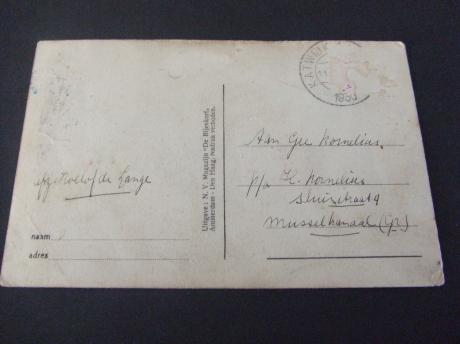 KATWIJK
1950
Aan Gré Kornelius.
p/a H. Kornelius
Sluisstraat 9
Musselkanaal (Gr.)
afz. Roelof de Lange
naam
adres
Uitgave: N. V. Magazijn "De Bijenkorf,
Amsterdam - Den Haag. Nadruk verboden.